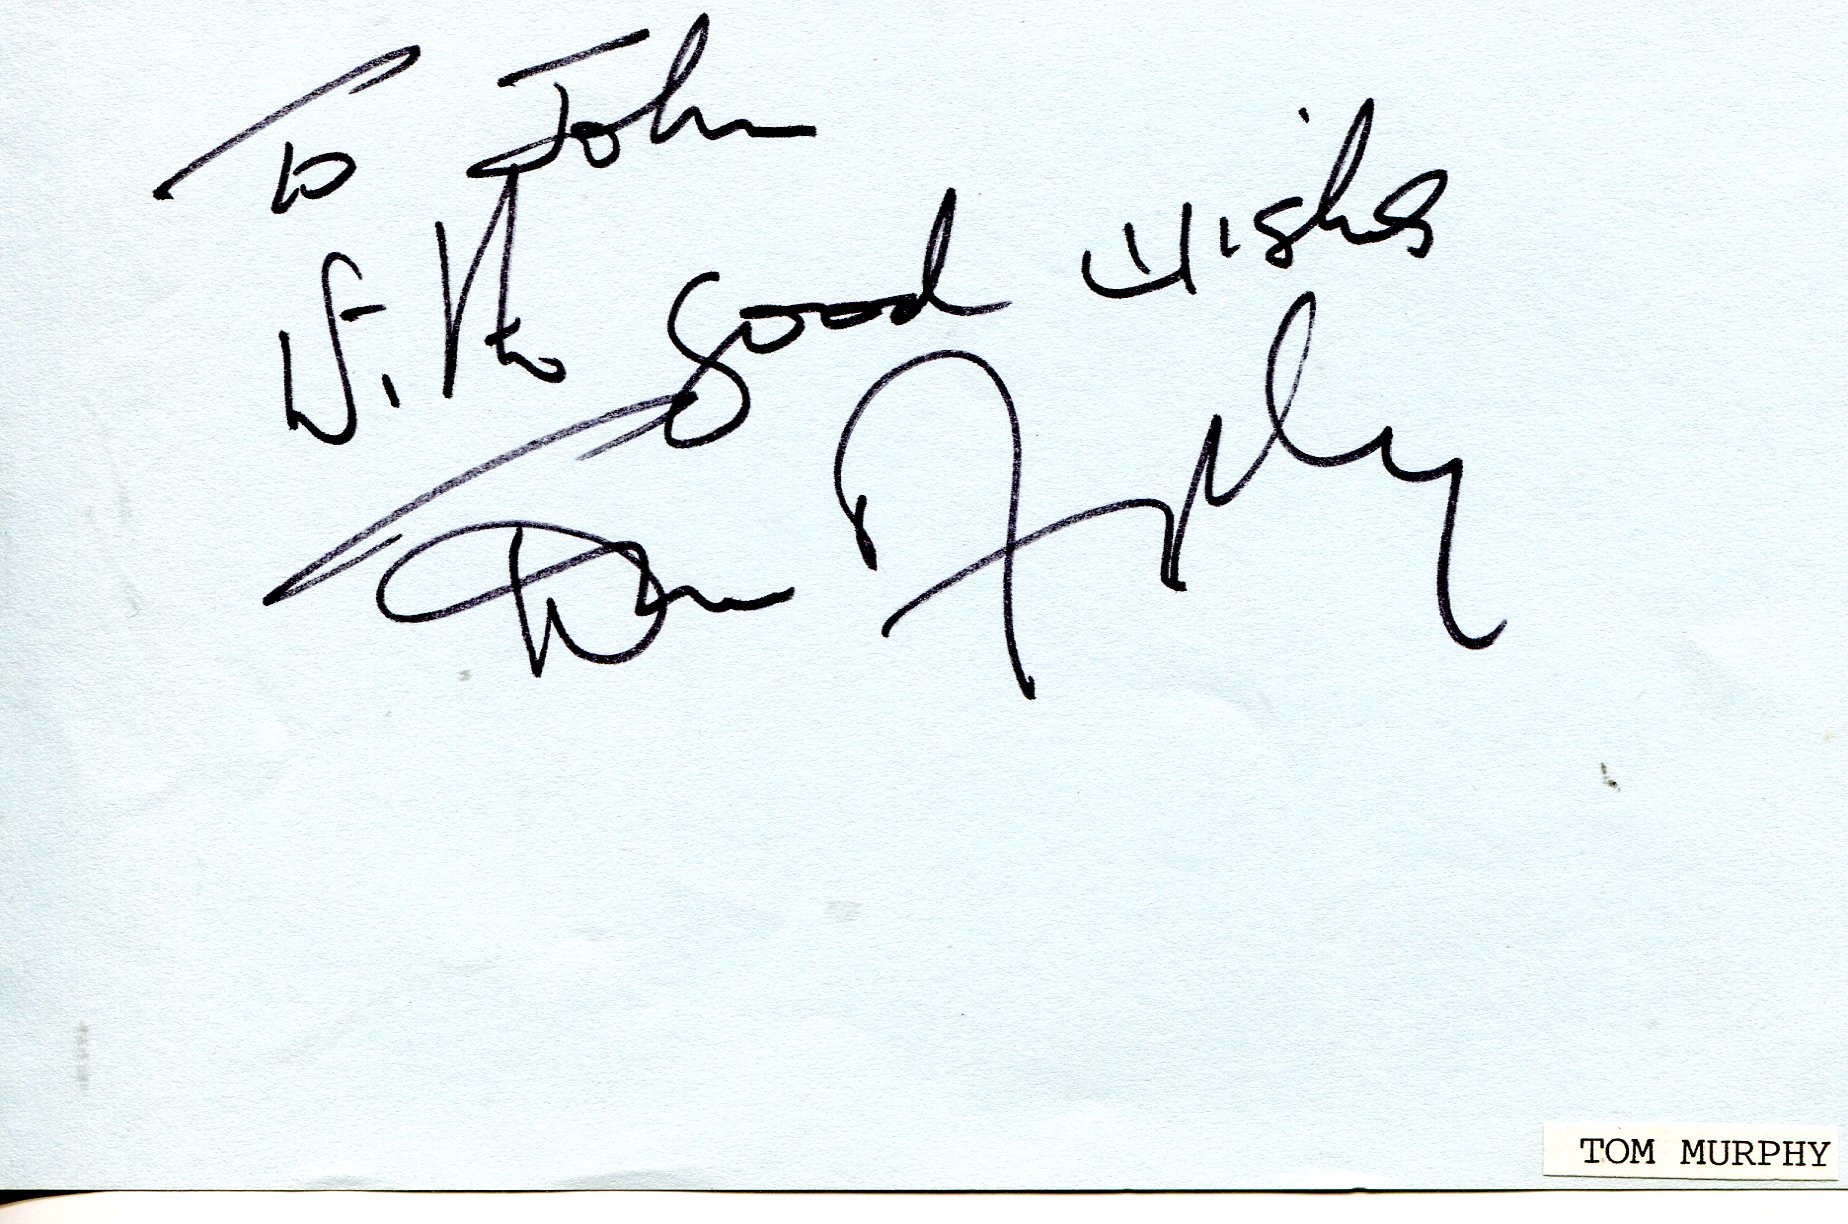 To John
With good wishes
Tom Murphy
TOM MURPHY